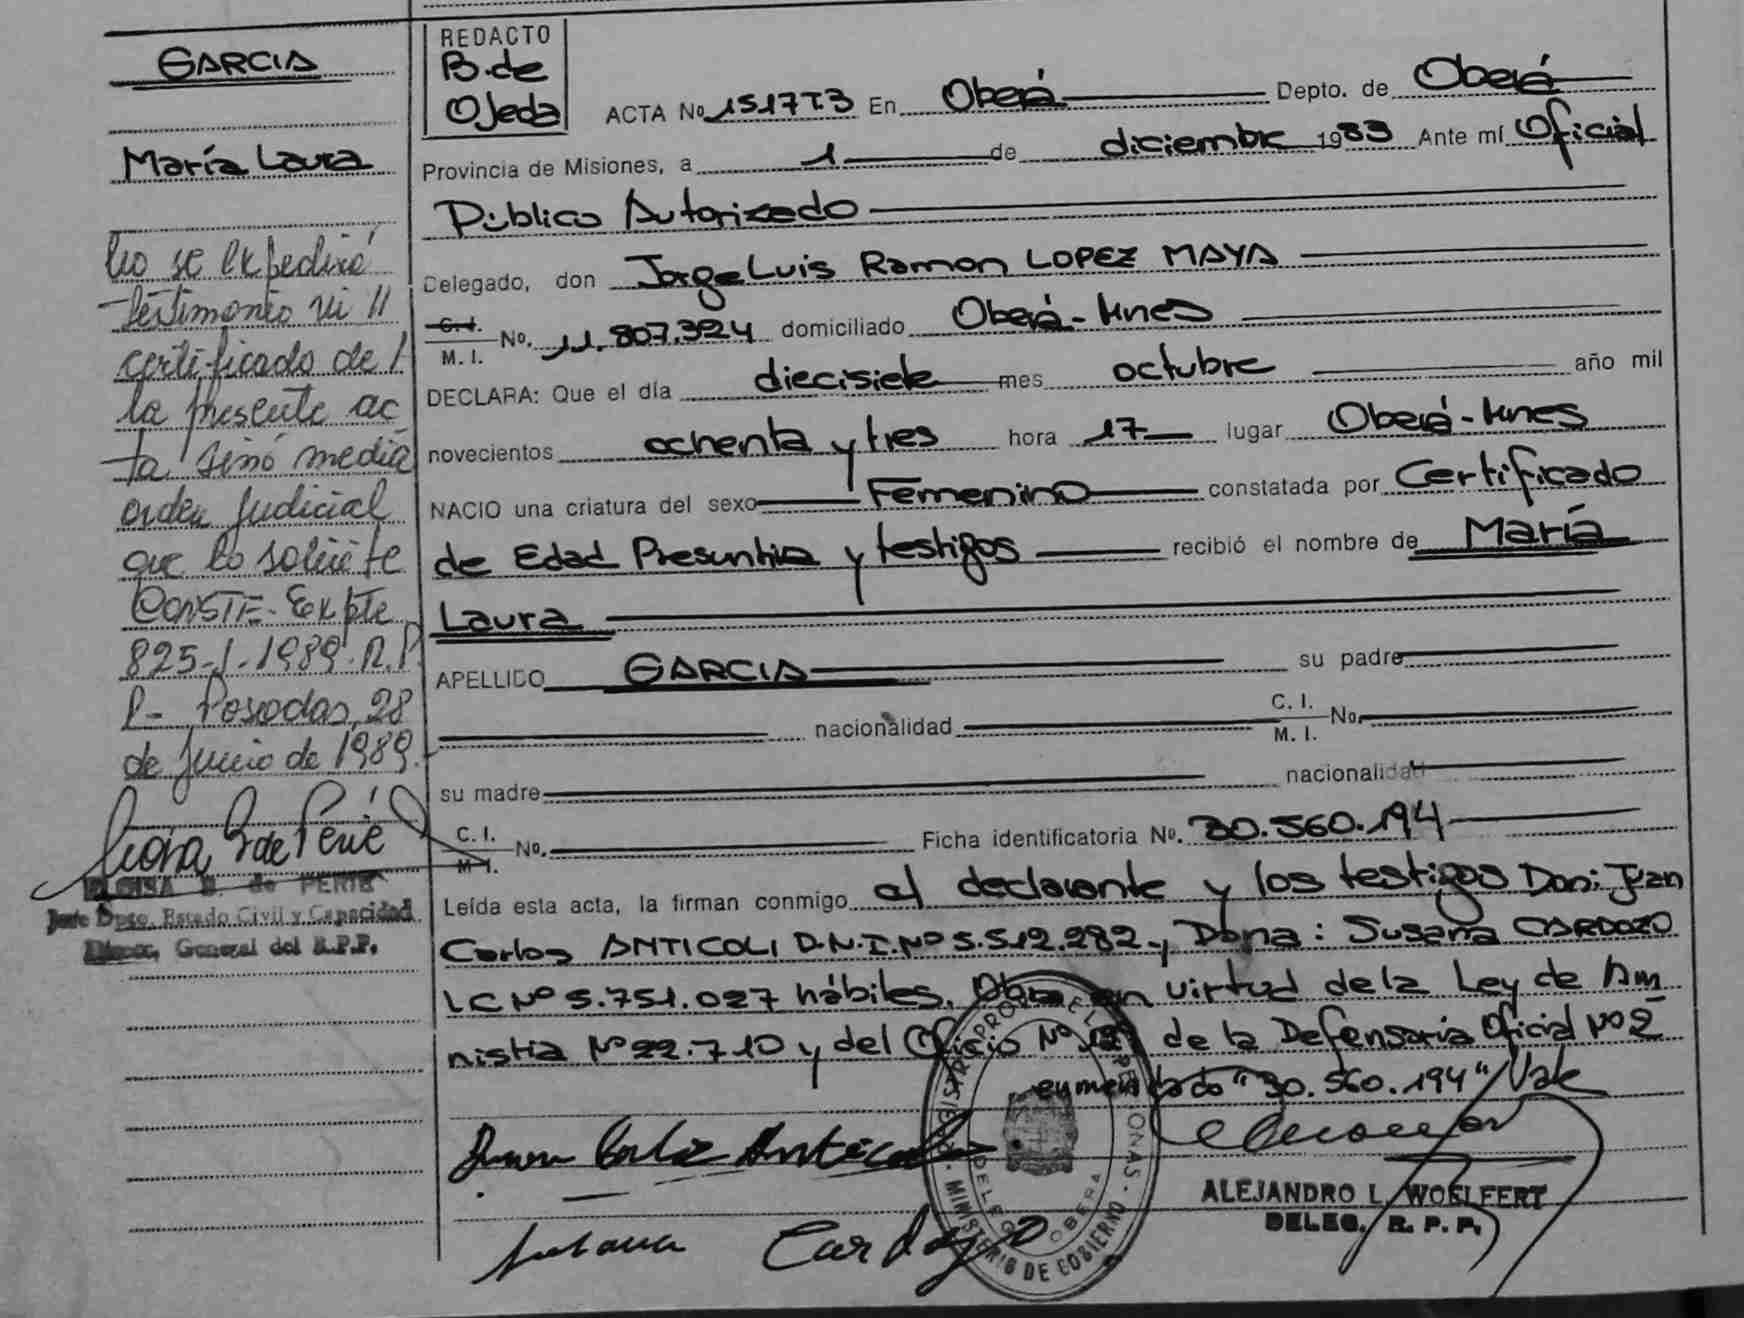 GARCIA
María Laura
No se expedirá
testimonio ni //
certificado de /
la presente ac
ta sinó media
orden judicial
que lo solicite
CONSTE- Expte
825-J-1989-R.P.
P- Posadas, 28
de Junio de 1989.
ELOISA B. de PERIE
Jefe Dpto. Estado Civil y Capacidad
Direcc. General del R.P.P.
REDACTO
B. de
Ojeda
ACTA No 1517T3 En Oberá Depto. de Oberá
Provincia de Misiones, a 1 de diciembre 1983 Ante mí Oficial
Público Autorizado
Delegado, don Jorge Luis Ramon LOPEZ MAYA
C. I.
M. I. No. 11.807.324 domiciliado Oberá-Mnes
DECLARA: Que el día diecisiete mes octubre año mil
novecientos ochenta y tres hora 17 lugar Oberá-Mnes
NACIO una criatura del sexo Femenino constatada por Certificado
de Edad Presuntiva y testigos recibió el nombre de María
Laura
APELLIDO GARCIA su padre
nacionalidad C. I. M. I. No.
su madre nacionalidad
C. I. M. I. No. Ficha identificatoria No. 30.560.194
Leída esta acta, la firman conmigo el declarante y los testigos Don: Juan
Carlos ANTICOLI D.N.I. Nº 5.512.282, Doña: Susana CARDOZO
LC Nº 5.751.027 hábiles. Obra en virtud de la Ley de Am
nistia Nº 22.710 y del Oficio Nº de la Defensoría Oficial Nº 2
enmendado "30.560.194" Vale
Juan Carlos Anticoli
Susana Cardozo
ALEJANDRO L. WOELFERT
DELEG. R. P. P.
REGISTRO PROV. DE LAS PERSONAS - MINISTERIO DE GOBIERNO
OBERA